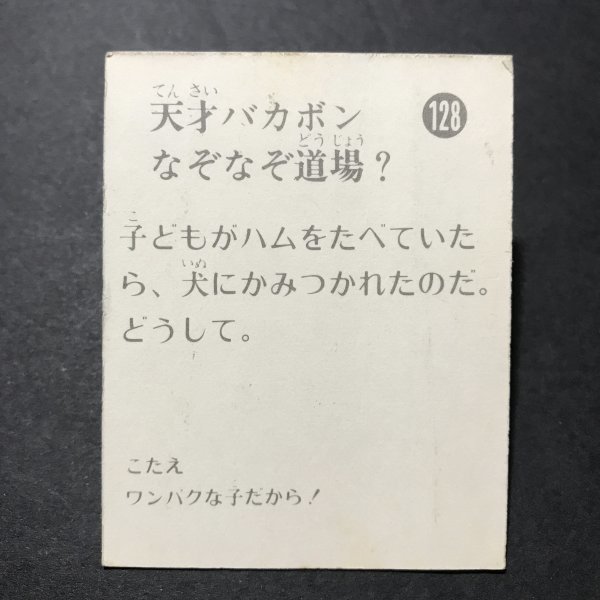 天才バカボン
なぞなぞ道場?
128
子どもがハムをたべていた
ら、犬にかみつかれたのだ。
どうして。
こたえ
ワンパクな子だから!